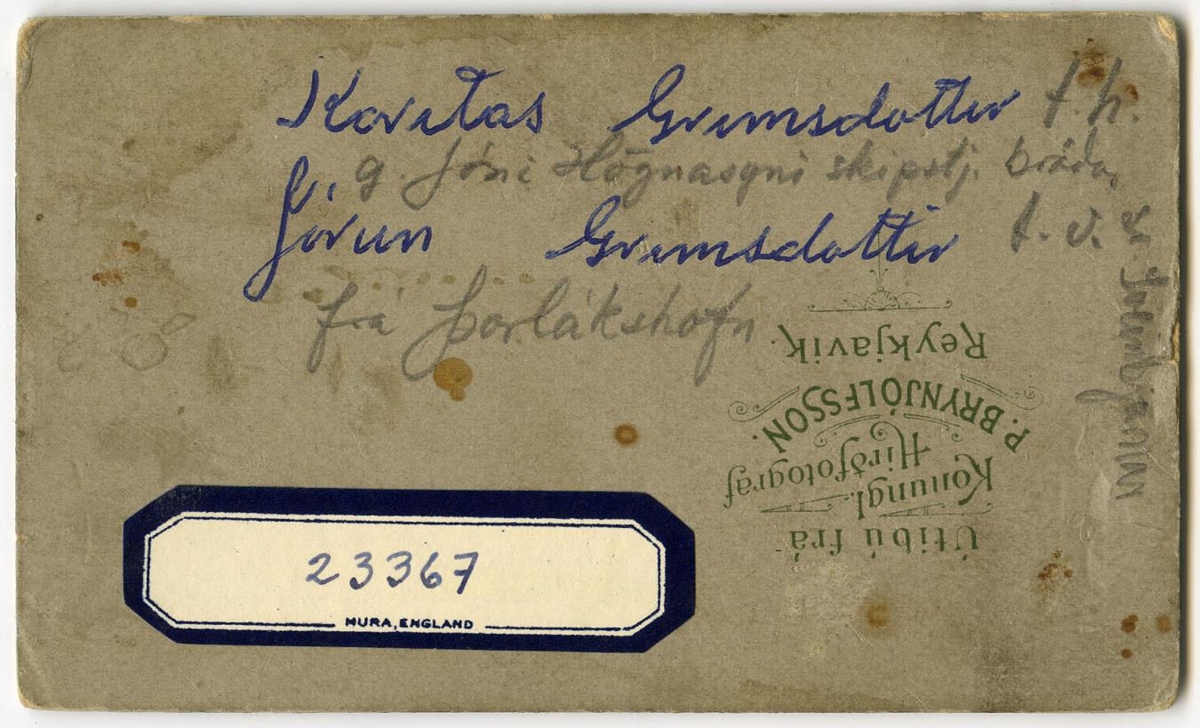 Karitas Grimsdottir t.h.
g. Jóni Högnasyni skipstj.
Jórun Grimsdottir t.v.
frá Þorlákshöfn
Útibú frá
Konungl.
Hirðfotograf
P. BRYNJÓLFSSON.
Reykjavik.
23367
NURA, ENGLAND